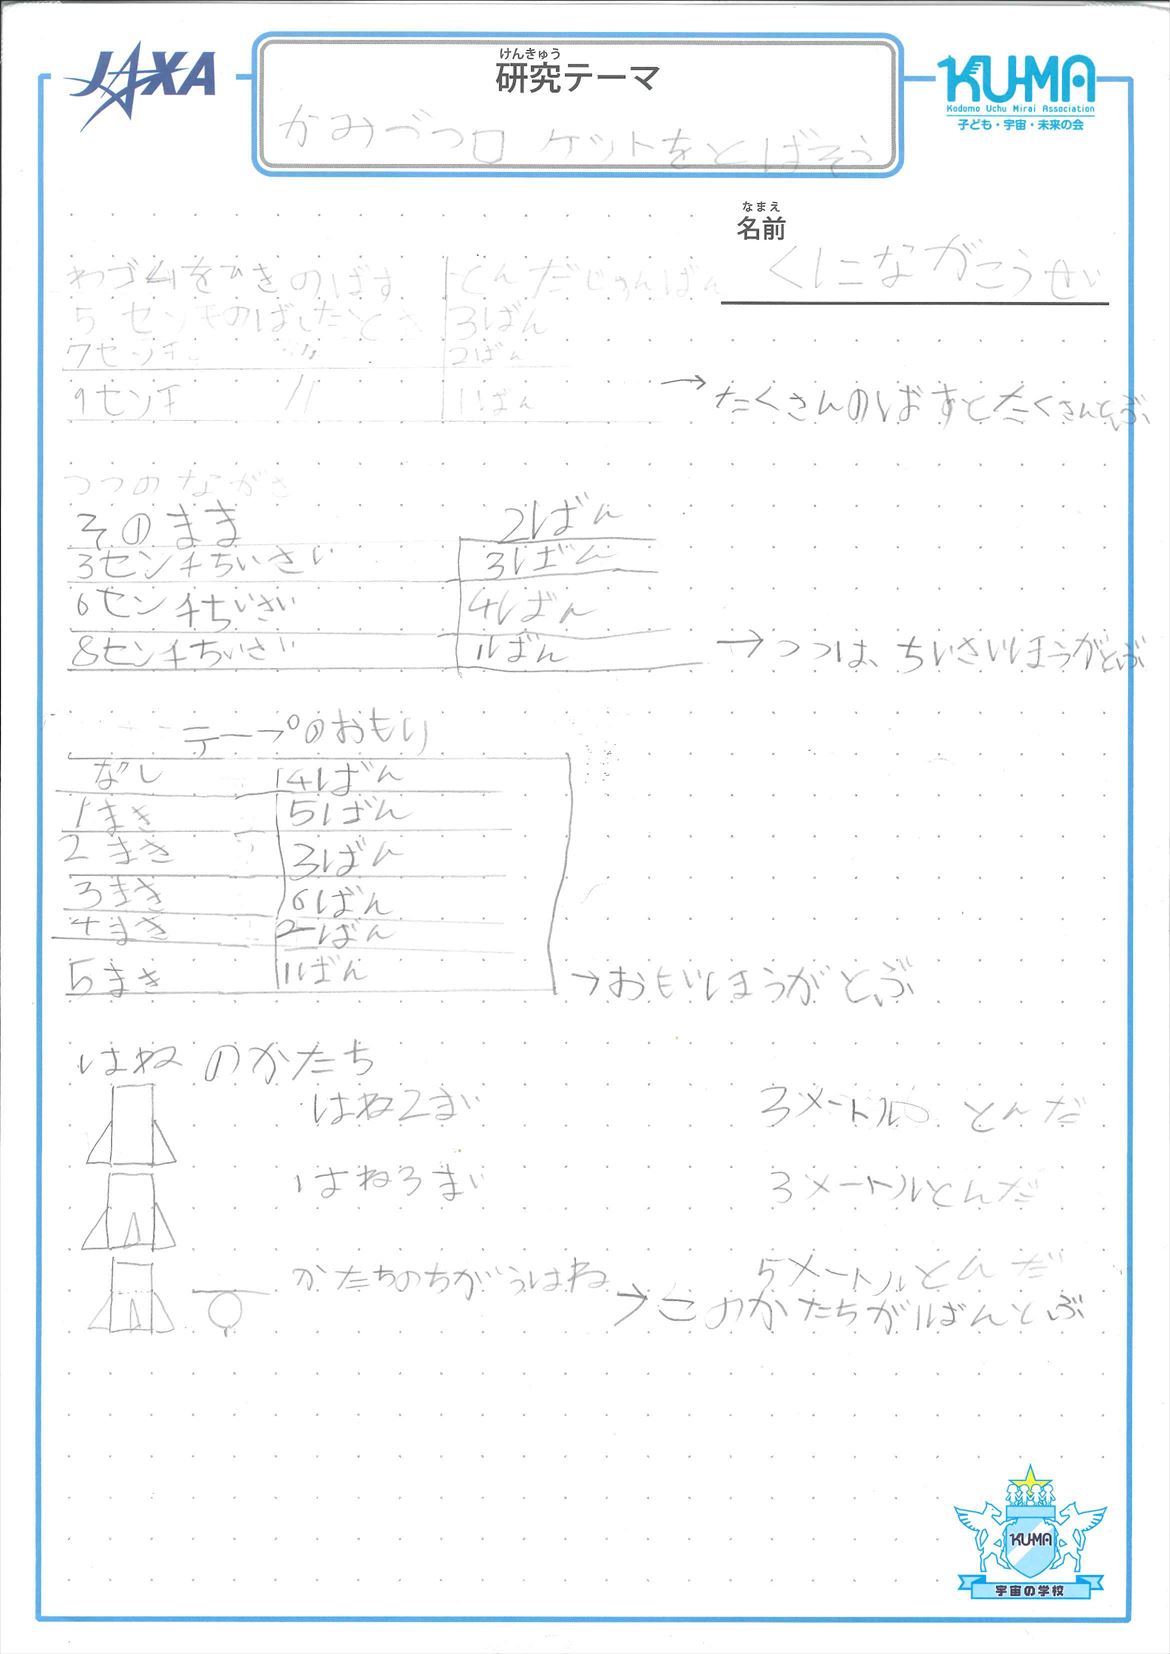 JAXA
けんきゅう
研究テーマ
かみづつロケットをとばそう
KU-MA
Kodomo Uchu Mirai Association
子ども・宇宙・未来の会
なまえ
名前
くにながこうせい
わゴムをひきのばす とんだじゅんばん
5センチのばしたとき 3ばん
7センチ 〃 2ばん
9センチ 〃 1ばん
→たくさんのばすとたくさんとぶ
つつのながさ
そのまま 2ばん
3センチちいさい 3ばん
6センチちいさい 4ばん
8センチちいさい 1ばん
→つつは、ちいさいほうがとぶ
テープのおもり
なし 4ばん
1まき 5ばん
2まき 3ばん
3まき 6ばん
4まき 2ばん
5まき 1ばん
→おもいほうがとぶ
はねのかたち
はね2まい 3メートル とんだ
はね3まい 3メートルとんだ
かたちのちがうはね 5メートルとんだ
→このかたちが1ばんとぶ
KU-MA
宇宙の学校